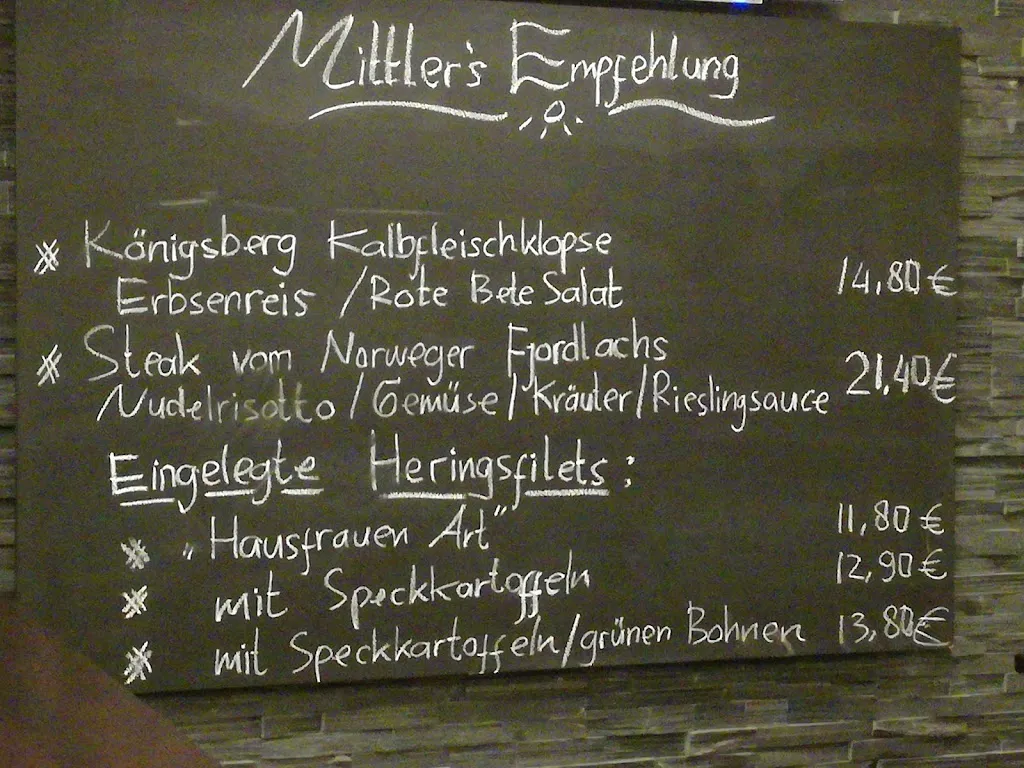 Mittler's Empfehlung
Königsberg Kalbfleischklopse
Erbsenreis / Rote Bete Salat 14,80 €
Steak vom Norweger Fjordlachs
Nudelrisotto / Gemüse / Kräuter / Rieslingsauce 21,40 €
Eingelegte Heringsfilets:
„Hausfrauen Art" 11,80 €
mit Speckkartoffeln 12,90 €
mit Speckkartoffeln / grünen Bohnen 13,80 €